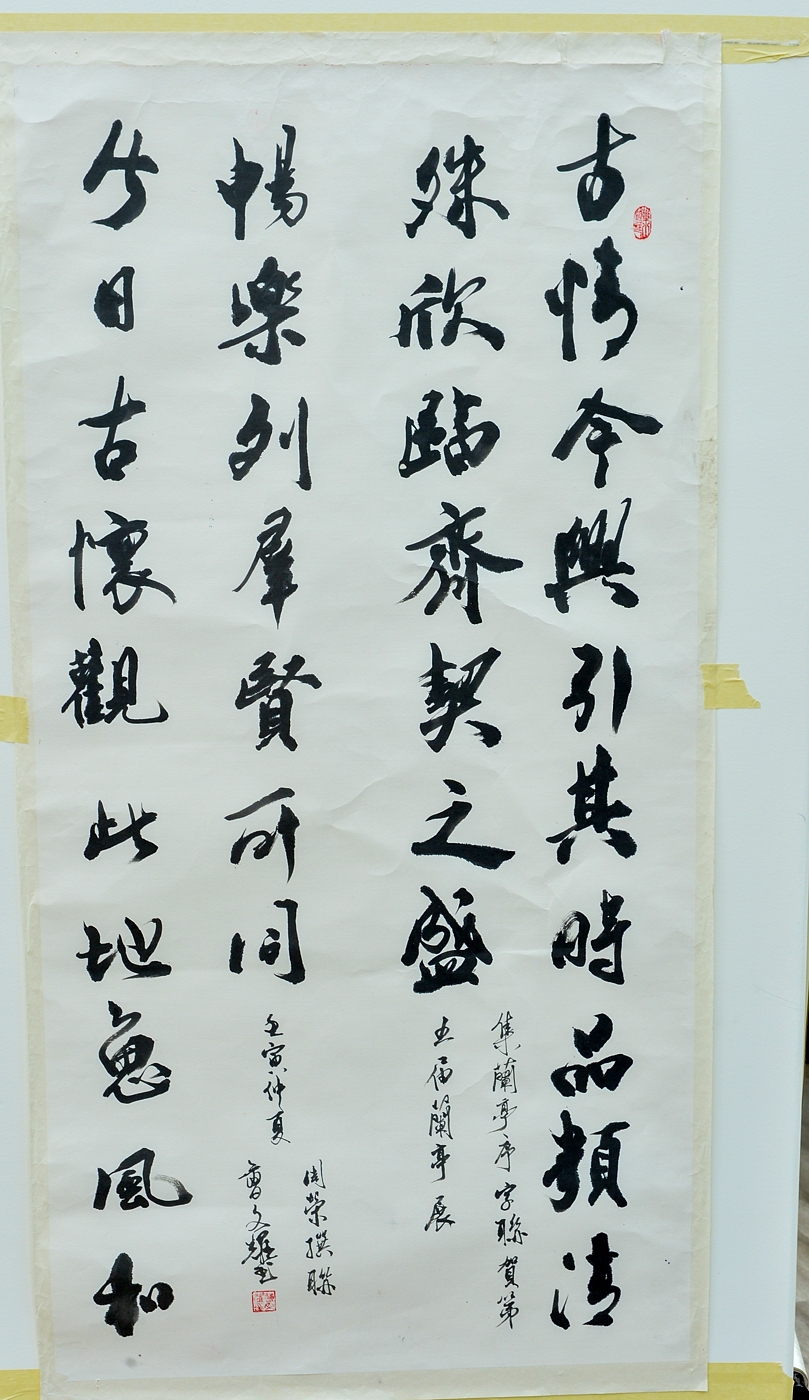 古情今興引其時品類清
殊欣臨齊契之盛
集蘭亭序字聯賀第
五屆蘭亭展
日古懷觀此地惠風和
暢樂列羣賢所同
壬寅仲夏
周榮撰聯
曹文耀書